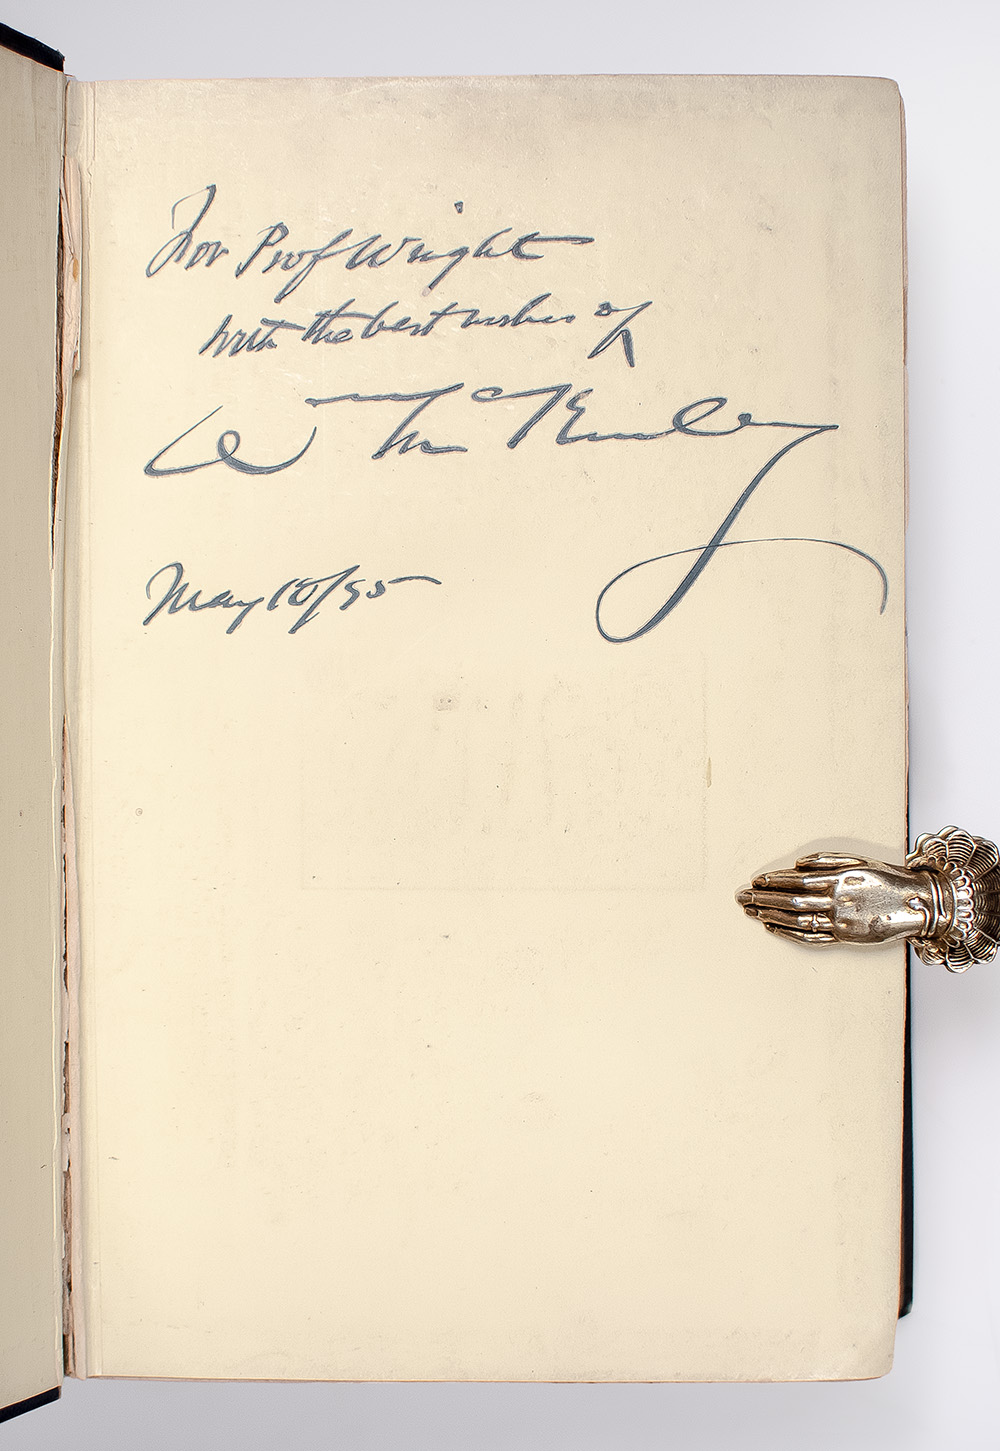 For Prof Wright
with the best wishes of
Wm McKinley
May 18/95